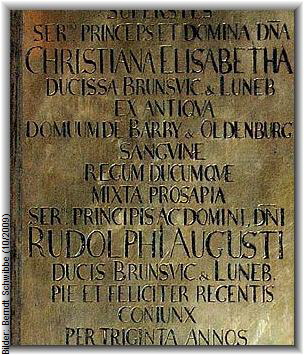 SUPERSTES
SERᴹᴬ PRINCEPS ET DOMINA DÑA
CHRISTIANA ELISABETHA
DUCISSA BRUNSVIC & LUNEB
EX ANTIQVA
DOMUUM DE BARBY & OLDENBURG
SANGVINE
REGUM DUCUMQVE
MIXTA PROSAPIA
SERᴹᴵ PRINCIPIS AC DOMINI, DÑI
RUDOLPHI AUGUSTI
DUCIS BRUNSVIC & LUNEB.
PIE ET FELICITER REGENTIS
CONIUNX
PER TRIGINTA ANNOS
Bilder: Berndt Schwibbe (10/2009)